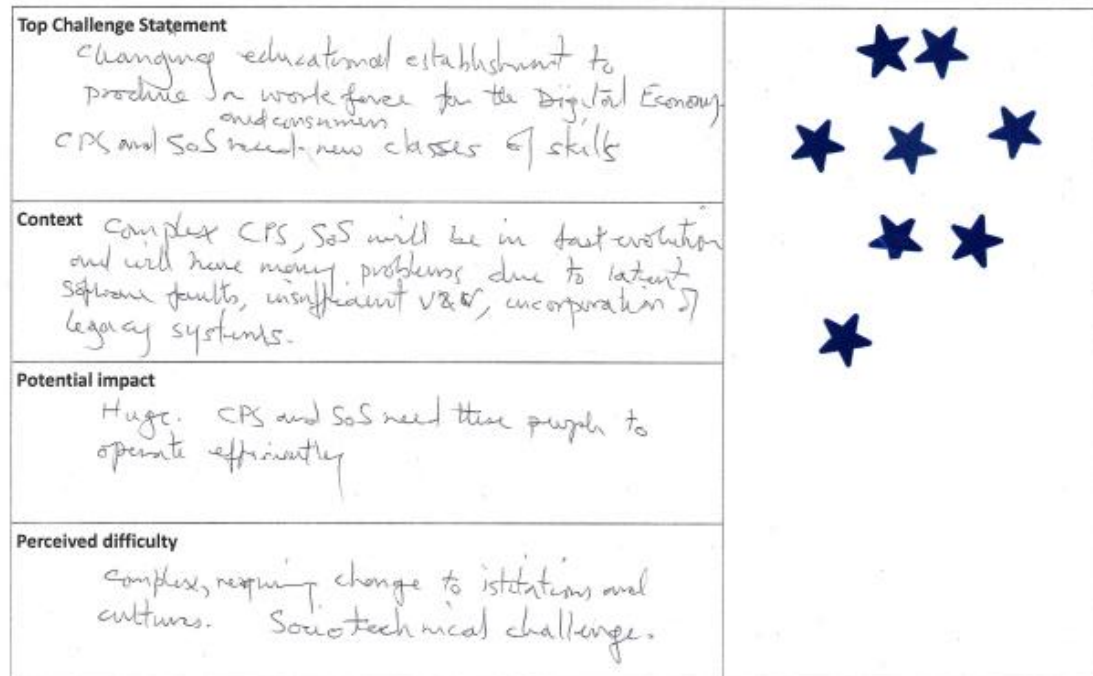 Top Challenge Statement
Changing educational establishment to
produce a workforce for the Digital Economy
and consumers
CPS and SoS need new classes of skills
Context Complex CPS, SoS will be in fast evolution
and will have many problems due to latent
software faults, insufficient V&V, incorporation of
legacy systems.
Potential impact
Huge. CPS and SoS need these people to
operate efficiently
Perceived difficulty
Complex, requiring change to istitations and
cultures. Sociotechnical challenge.